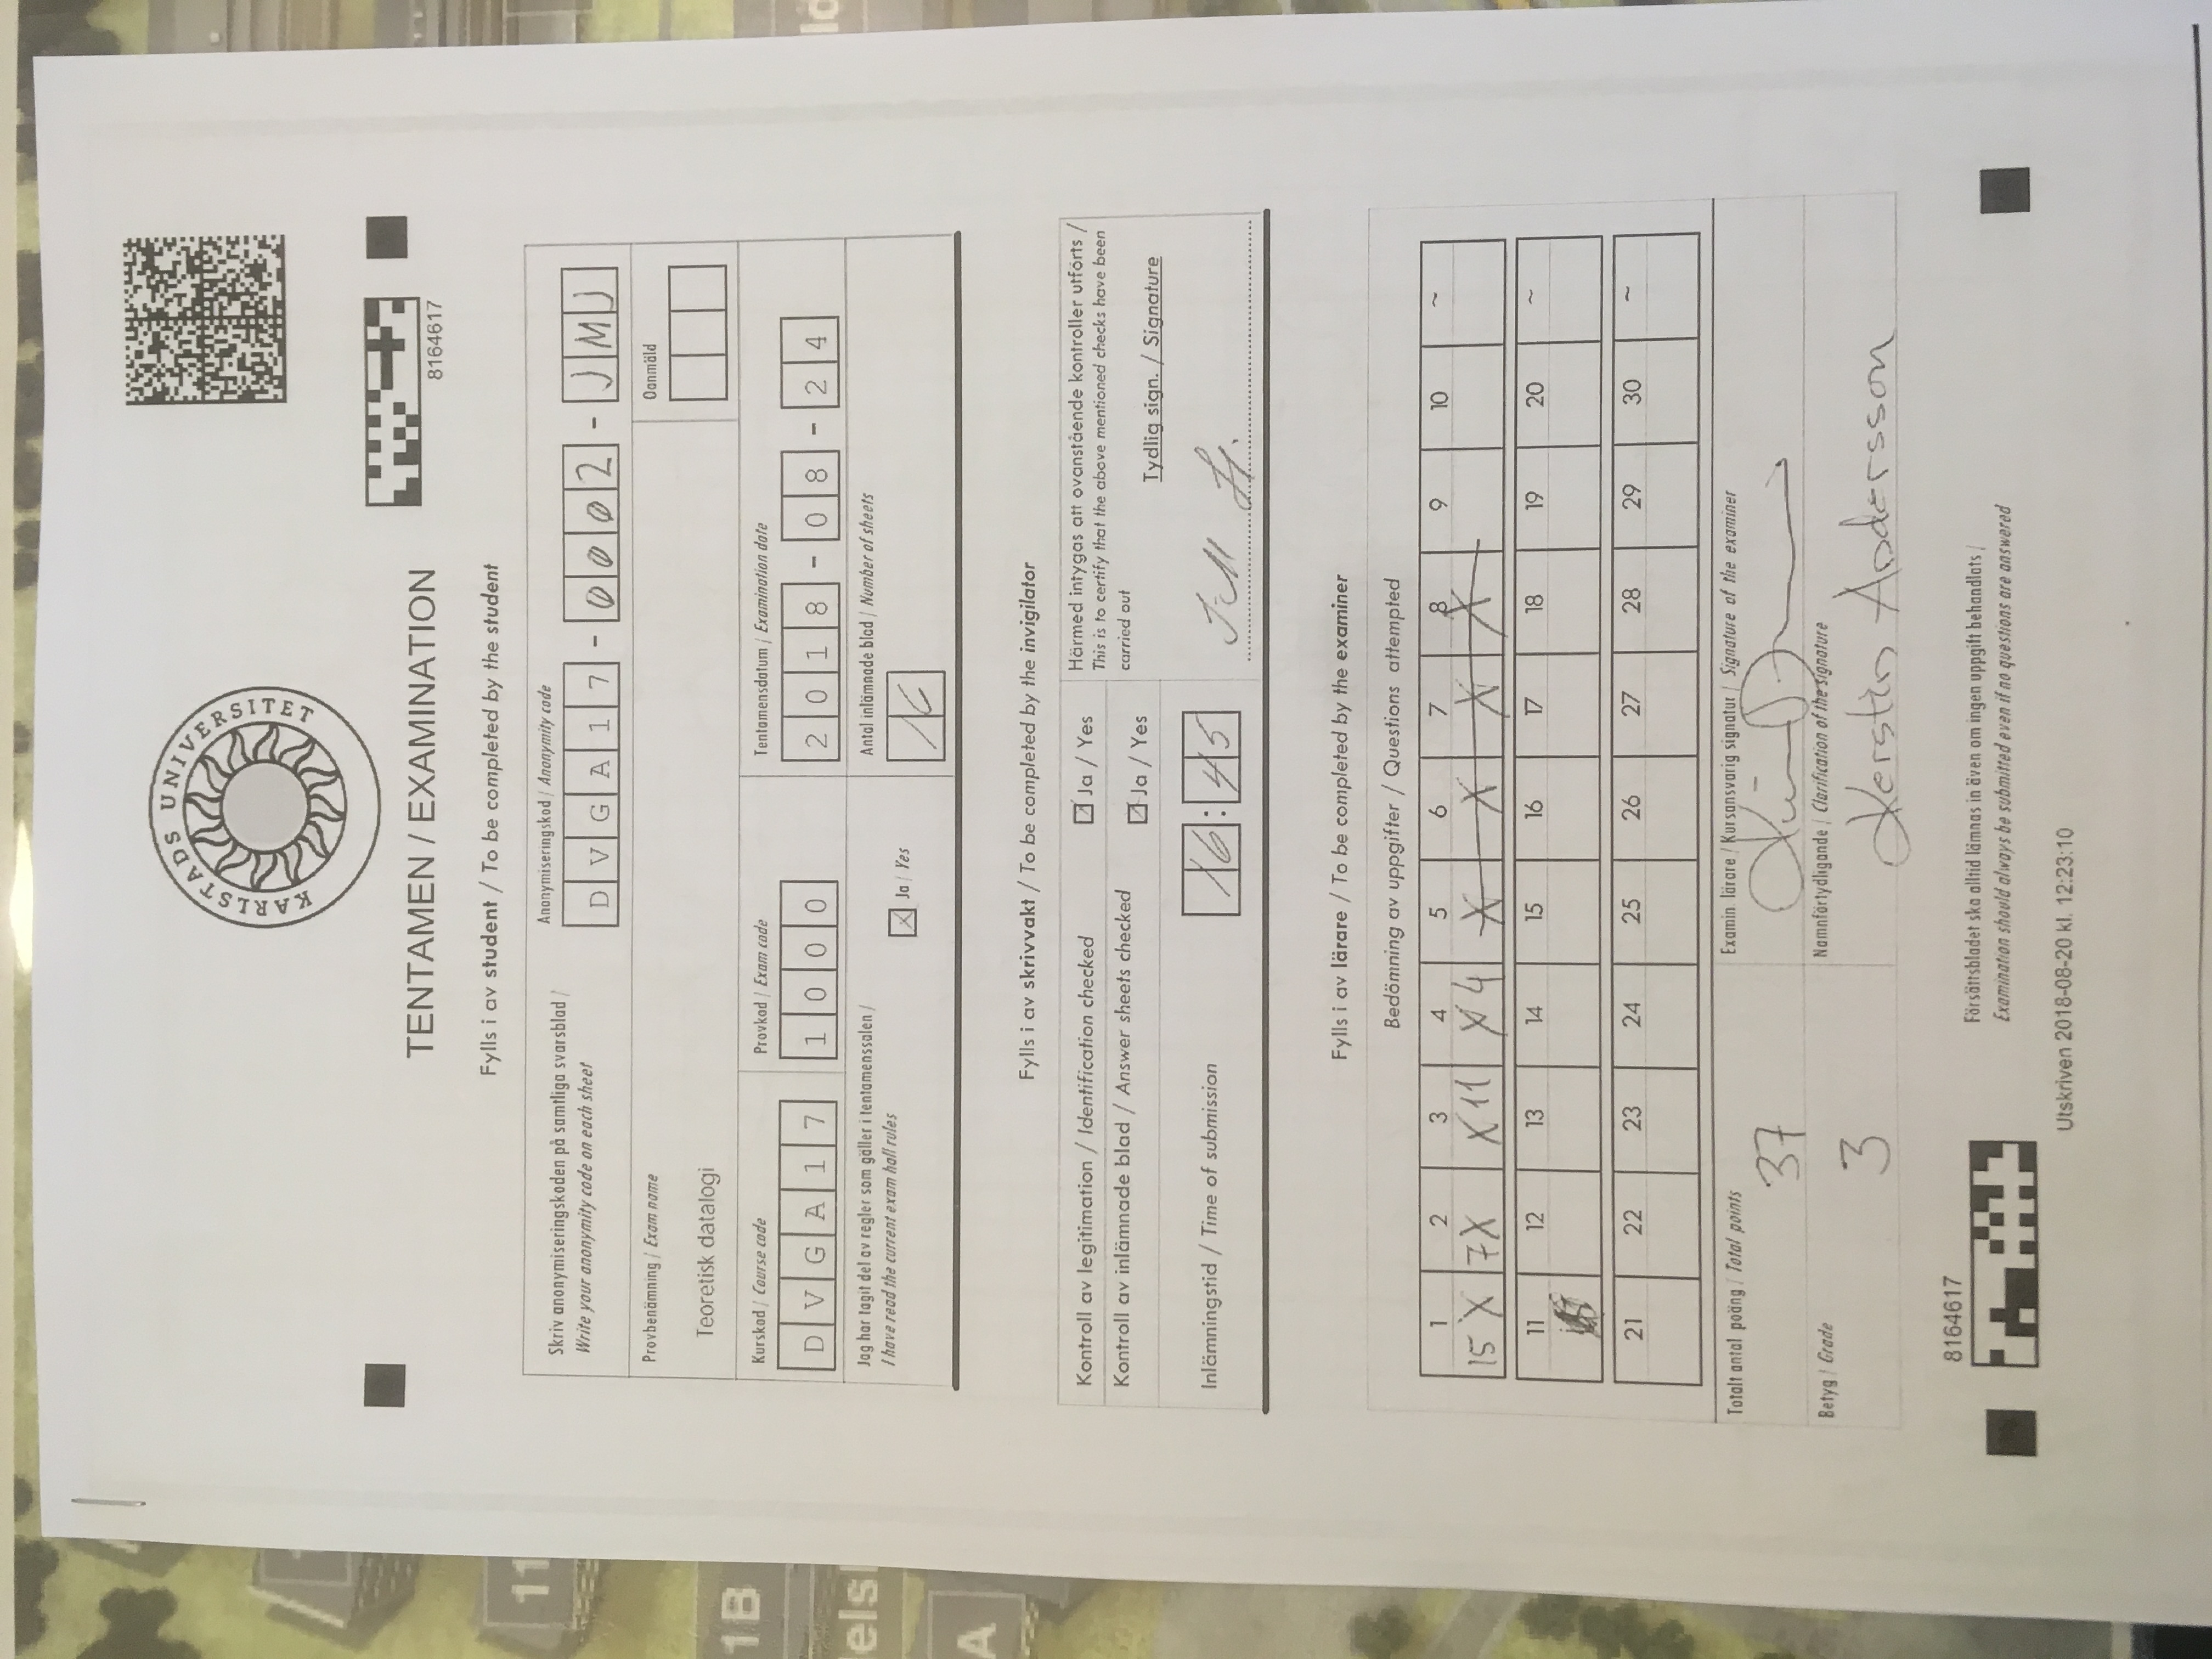 KARLSTADS UNIVERSITET
TENTAMEN / EXAMINATION
8164617
Fylls i av student / To be completed by the student
Skriv anonymiseringskoden på samtliga svarsblad /
Write your anonymity code on each sheet
Anonymiseringskod / Anonymity code
DVGA17-0002-JMJ
Provbenämning / Exam name
Oanmäld
Teoretisk datalogi
Kurskod / Course code
Provkod / Exam code
Tentamensdatum / Examination date
DVGA17
1000
2018-08-24
Jag har tagit del av regler som gäller i tentamenssalen /
I have read the current exam hall rules
X Ja / Yes
Antal inlämnade blad / Number of sheets
16
Fylls i av skrivvakt / To be completed by the invigilator
Kontroll av legitimation / Identification checked
Ja / Yes
Kontroll av inlämnade blad / Answer sheets checked
Ja / Yes
Härmed intygas att ovanstående kontroller utförts /
This is to certify that the above mentioned checks have been
carried out
Tydlig sign. / Signature
Inlämningstid / Time of submission
16:45
Fylls i av lärare / To be completed by the examiner
Bedömning av uppgifter / Questions attempted
1 2 3 4 5 6 7 8 9 10 ~
15 X 7X X 11 X 4 X X X X
11 12 13 14 15 16 17 18 19 20 ~
21 22 23 24 25 26 27 28 29 30 ~
Totalt antal poäng / Total points
37
Examin lärare / Kursansvarig signatur / Signature of the examiner
Betyg / Grade
3
Namnförtydligande / Clarification of the signature
Kerstin Andersson
8164617
Försättsbladet ska alltid lämnas in även om ingen uppgift behandlats /
Examination should always be submitted even if no questions are answered
Utskriven 2018-08-20 kl. 12:23:10
11
1B
A